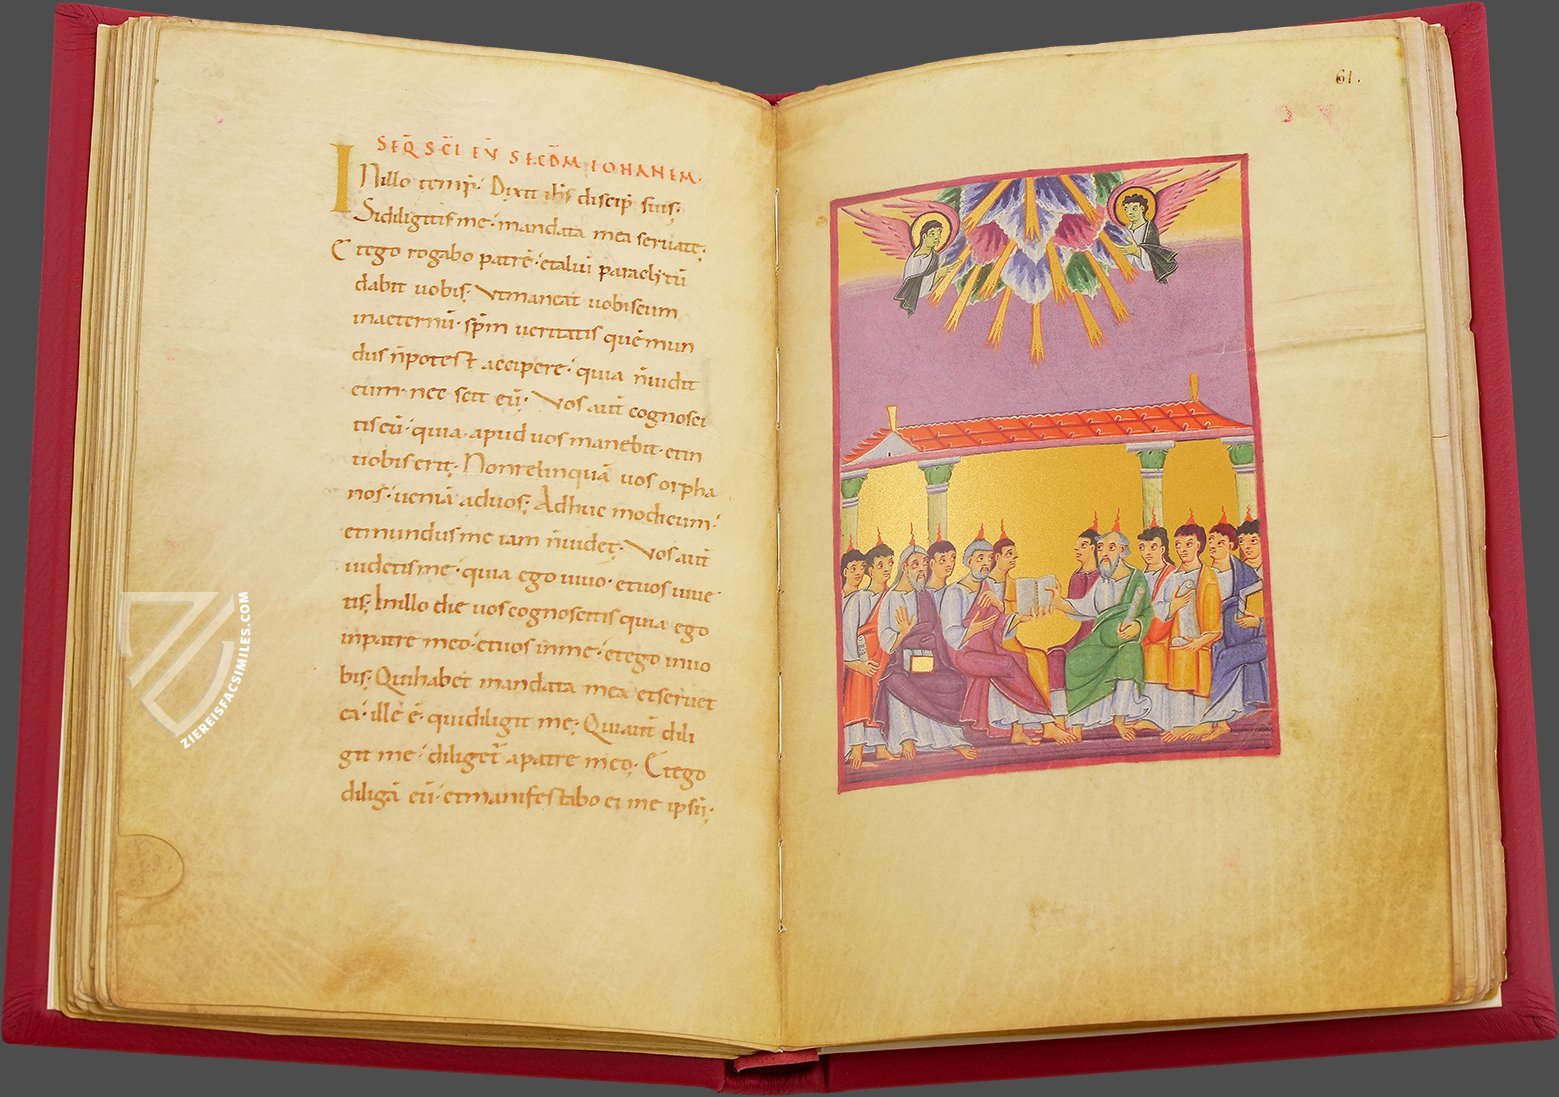 SEQ̄ SC̄I EV̄ SECD̄M IOHANEM.
INillo temp̄. Dixit ih̄s discip̄ suis;
Sidiligitis me. mandata mea seruate;
Etego rogabo patrē. etaliū paraclitū
dabit uobis; Vtmaneat uobiscum
inaeternū. sp̄m ueritatis quē mun
dus n̄potest accipere. quia n̄uidit
eum. nec scit eū; Vos aut̄ cognosci
tis eū. quia apud uos manebit. etin
uobis erit; Nonrelinquā uos orpha
nos. ueniā aduos; Adhuc modicum.
etmundus me iam n̄uidet; Vos aut̄
uidetis me. quia ego uiuo. etuos uiue
tis; Inillo die uos cognoscetis quia ego
inpatre meo. etuos inme. etego inuo
bis; Quihabet mandata mea etseruat
ea. ille ē. quidiligit me; Quiaut̄ dili
git me. diliget̄ apatre meo; Etego
diligā eū. etmanifestabo ei me ipsū;
61.
ZIEREISFACSIMILES.COM